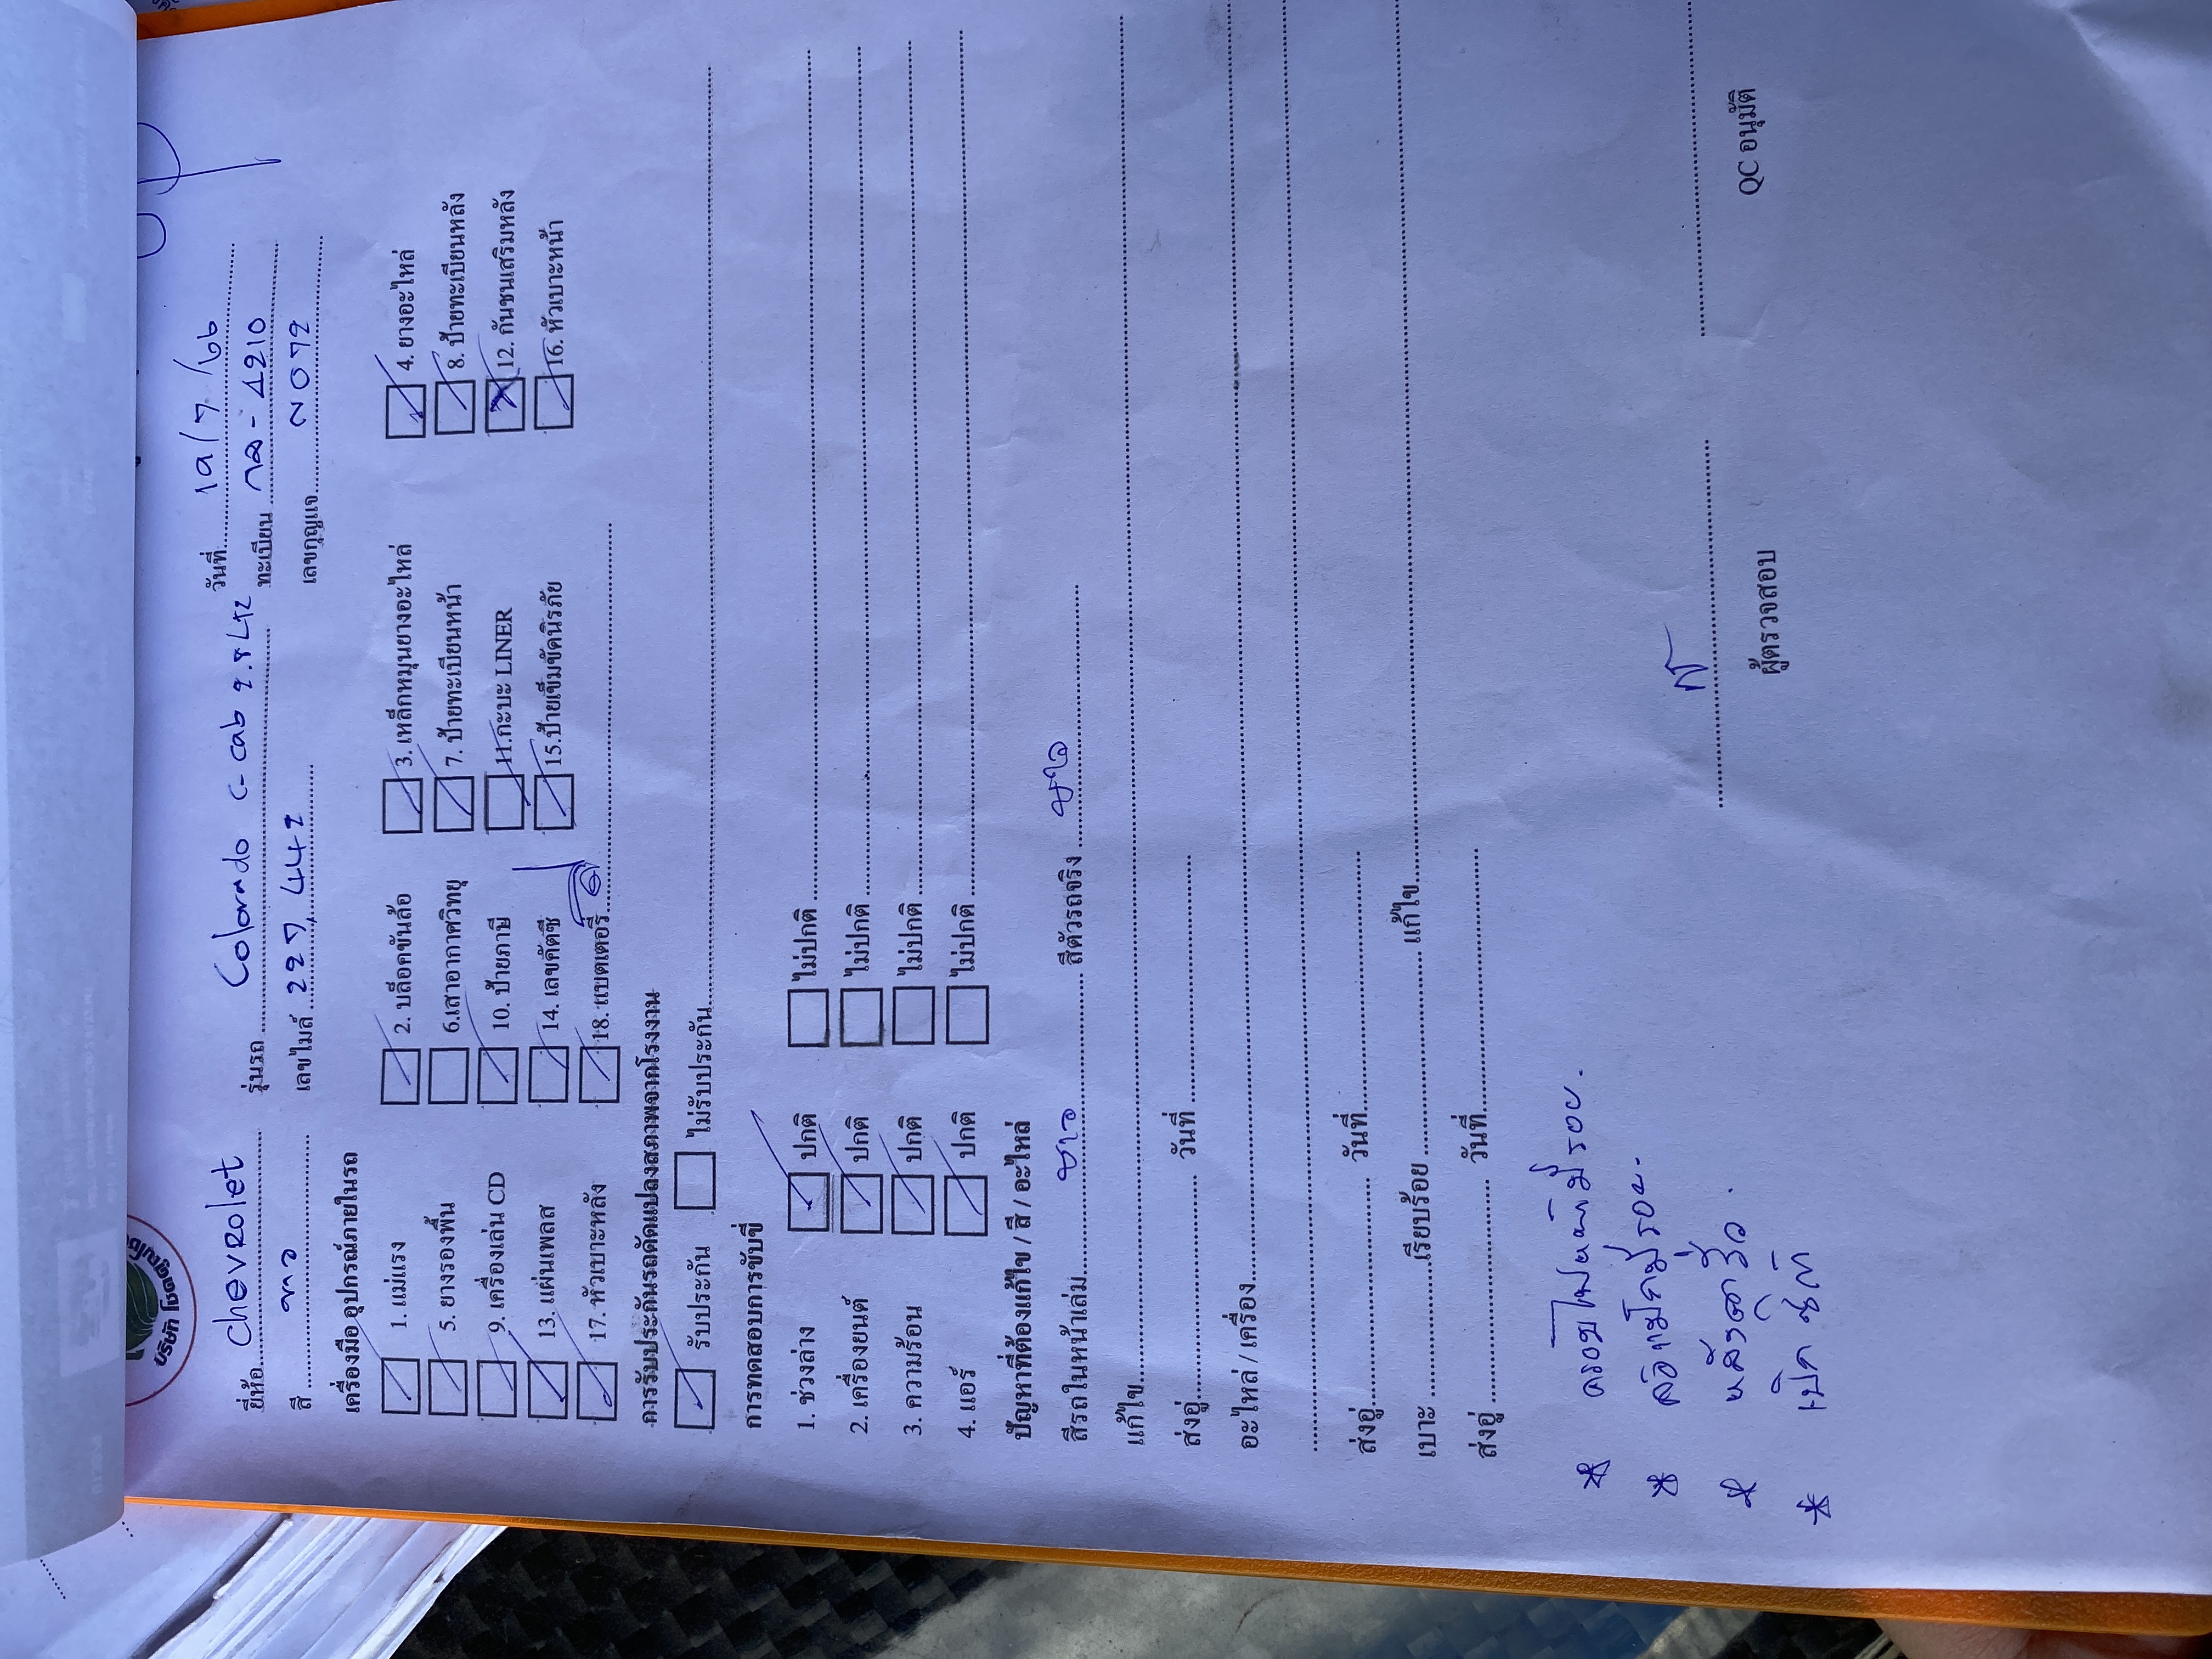 บริษัท โชคคูณ
ยี่ห้อ Chevrolet รุ่นรถ Colorado C-cab วันที่ 19/7/66
สี เลขไมล์ 227,442 ทะเบียน 4210 เลขกุญแจ N072
เครื่องมือ อุปกรณ์ภายในรถ
1. แม่แรง 2. บล็อคขันล้อ 3. เหล็กหมุนยางอะไหล่ 4. ยางอะไหล่
5. ยางรองพื้น 6.เสาอากาศวิทยุ 7. ป้ายทะเบียนหน้า 8. ป้ายทะเบียนหลัง
9. เครื่องเล่น CD 10. ป้ายภาษี 11.กะบะ LINER 12. กันชนเสริมหลัง
13. แผ่นเพลส 14. เลขคัตซี 15.ป้ายเข็มขัดนิรภัย 16. หัวเบาะหน้า
17. หัวเบาะหลัง 18. แบตเตอรี่
การรับประกันรถดัดแปลงสภาพจากโรงงาน
รับประกัน ไม่รับประกัน
การทดสอบการขับขี่
1. ช่วงล่าง ปกติ ไม่ปกติ
2. เครื่องยนต์ ปกติ ไม่ปกติ
3. ความร้อน ปกติ ไม่ปกติ
4. แอร์ ปกติ ไม่ปกติ
ปัญหาที่ต้องแก้ไข / สี / อะไหล่
สีรถในหน้าเล่ม ขาว สีตัวรถจริง
แก้ไข
ส่งอู่ วันที่
อะไหล่ / เครื่อง
ส่งอู่ วันที่
เบาะ เรียบร้อย แก้ไข
ส่งอู่ วันที่
* มีรอย.
* มีรอย.
*
*
ผู้ตรวจสอบ QC อนุมัติ